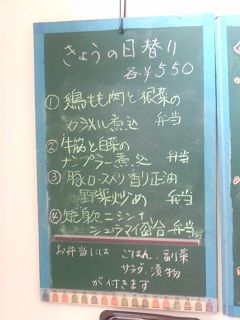 きょうの日替り
各¥550
① 鶏もも肉と根菜の
カラメル煮込 弁当
② 牛筋と白菜の
ナンプラー煮込 弁当
③ 豚ロース入り香り正油
野菜炒め 弁当
④ 焼ニシン+
シュウマイ盛合 弁当
お弁当には ごはん、副菜
サラダ、漬物
が付きます